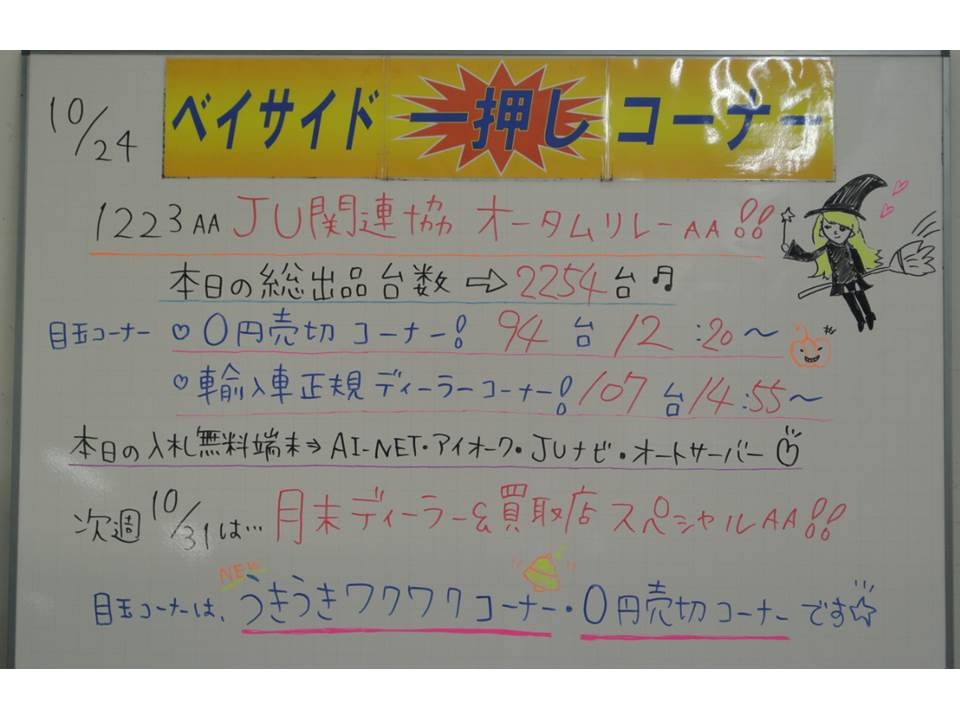 ベイサイド 一押し コーナー
10/24
1223AA JU関連協 オータムリレーAA!!
本日の総出品台数⇨2254台♬
目玉コーナー ♡0円売切コーナー! 94台 12:20〜
♡輸入車正規ディーラーコーナー! 107台 14:55〜
本日の入札無料端末⇒AI-NET・アイオーク・JUナビ・オートサーバー
次週10/31は…月末ディーラー&買取店スペシャルAA!!
NEW
目玉コーナーは、うきうきワクワクコーナー・0円売切コーナーです☆